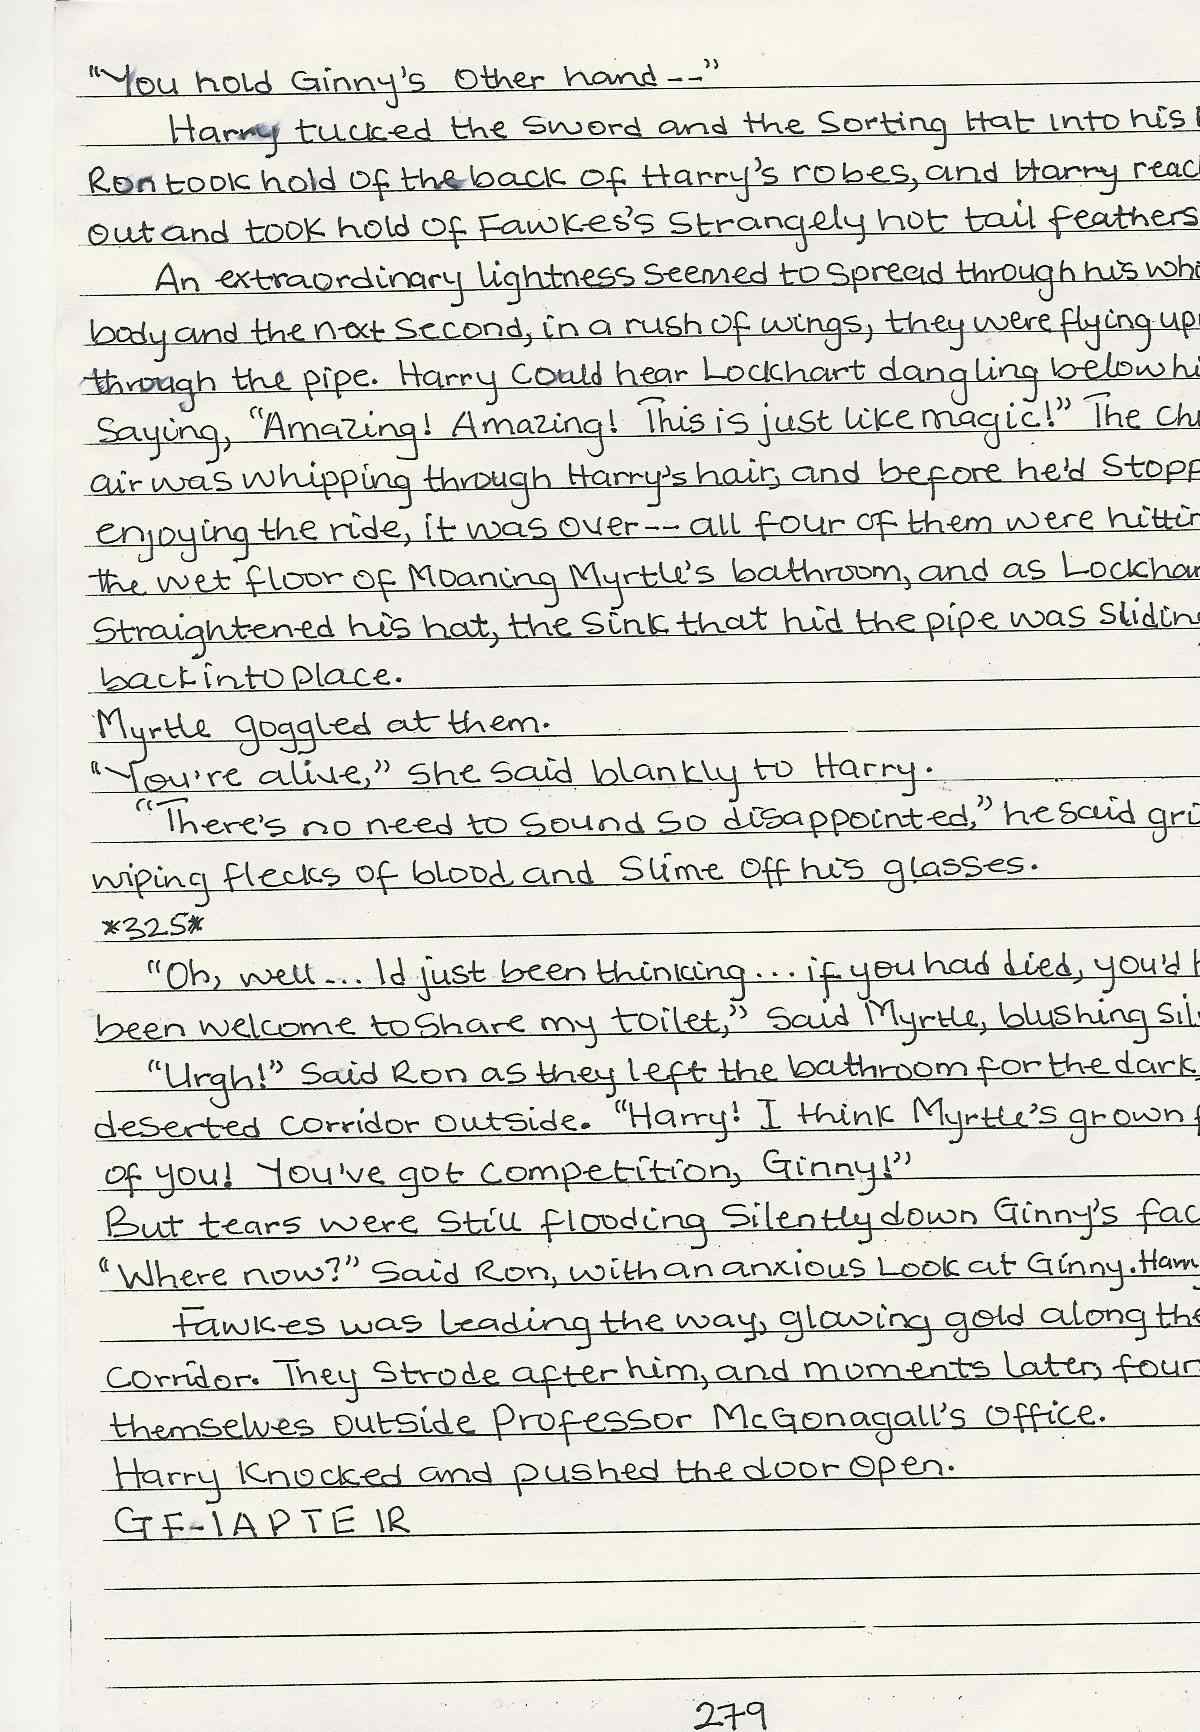 "You hold Ginny's Other hand--"
Harry tucked the sword and the Sorting Hat into his
Ron took hold of the back of Harry's robes, and Harry reac
out and took hold of Fawkes's Strangely hot tail feathers
An extraordinary lightness seemed to spread through his who
body and the next second, in a rush of wings, they were flying up
through the pipe. Harry Could hear Lockhart dangling below hi
Saying, "Amazing! Amazing! This is just like magic!" The chi
air was whipping through Harry's hair, and before he'd stopp
enjoying the ride, it was over-- all four of them were hittin
the wet floor of Moaning Myrtle's bathroom, and as Lockhar
Straightened his hat, the sink that hid the pipe was sliding
back into place.
Myrtle goggled at them.
"You're alive," she said blankly to Harry.
"There's no need to sound so disappointed," he said gri
wiping flecks of blood and Slime Off his glasses.
*325*
"Oh, well... Id just been thinking... if you had died, you'd h
been welcome to share my toilet," said Myrtle, blushing sil
"Urgh!" Said Ron as they left the bathroom for the dark,
deserted corridor outside. "Harry! I think Myrtle's grown f
of you! You've got competition, Ginny!"
But tears were still flooding silently down Ginny's fac
"Where now?" Said Ron, with an anxious Look at Ginny. Harry
Fawkes was leading the way, glowing gold along the
corridor. They strode after him, and moments later, foun
themselves outside Professor McGonagall's Office.
Harry Knocked and pushed the door open.
GF-IAPTE IR
279